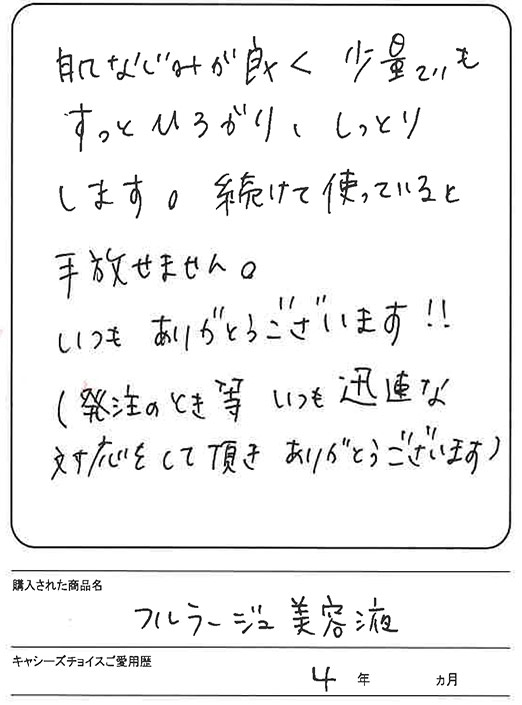 肌なじみが良く 少量でも
すっとひろがり、しっとり
します。続けて使っていると
手放せません。
いつも ありがとうございます!!
(発注のとき等 いつも迅速な
対応をして頂き ありがとうございます)
購入された商品名
フルラージュ美容液
キャシーズチョイスご愛用歴
4 年 ヵ月